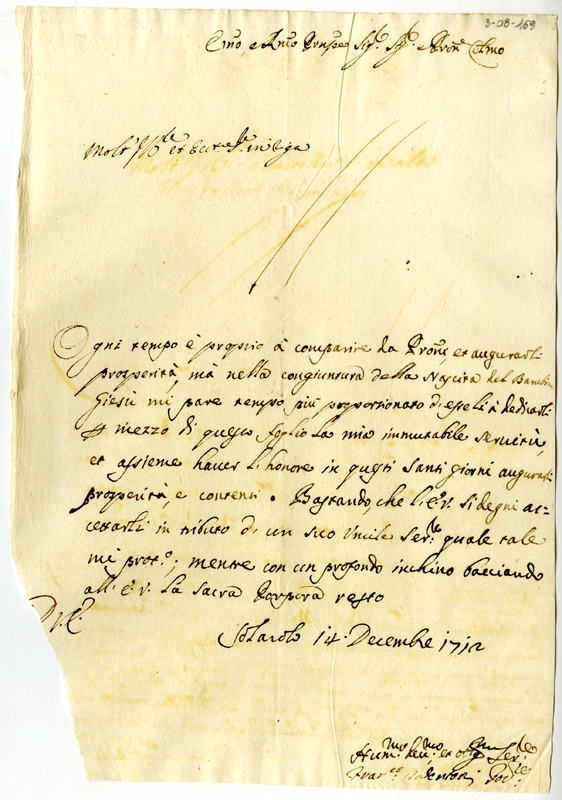 3-08-169
Em̃o, e Rm̃o Prnpe Sig.r Sig.r e Pron Colmo
Molt' Ill.e et Ecc.
Ogni tempo è proprio à comparire da Proni et augurarli
prosperità, mà nella congiuntura della Nascita del Bambin
Giesù mi pare tempo più proportionato d'esseli à dedicarli
mezzo di questo foglio la mia immutabile servitù,
et assieme haver l'honore in questi Santi giorni augurarli
prosperità, e contenti. Bastando, che l'E.V. si degni ac=
cettarli in tributo di un suo Umile Ser.e quale tale
mi prot.o; mentre con un profondo inchino bacciando
all'E.V. la Sacra Porpora resto
D V E.
Solarolo 14. Decembre 1712
Hum.mo Deu.mo, et oblig.mo Ser.re
Fran.co